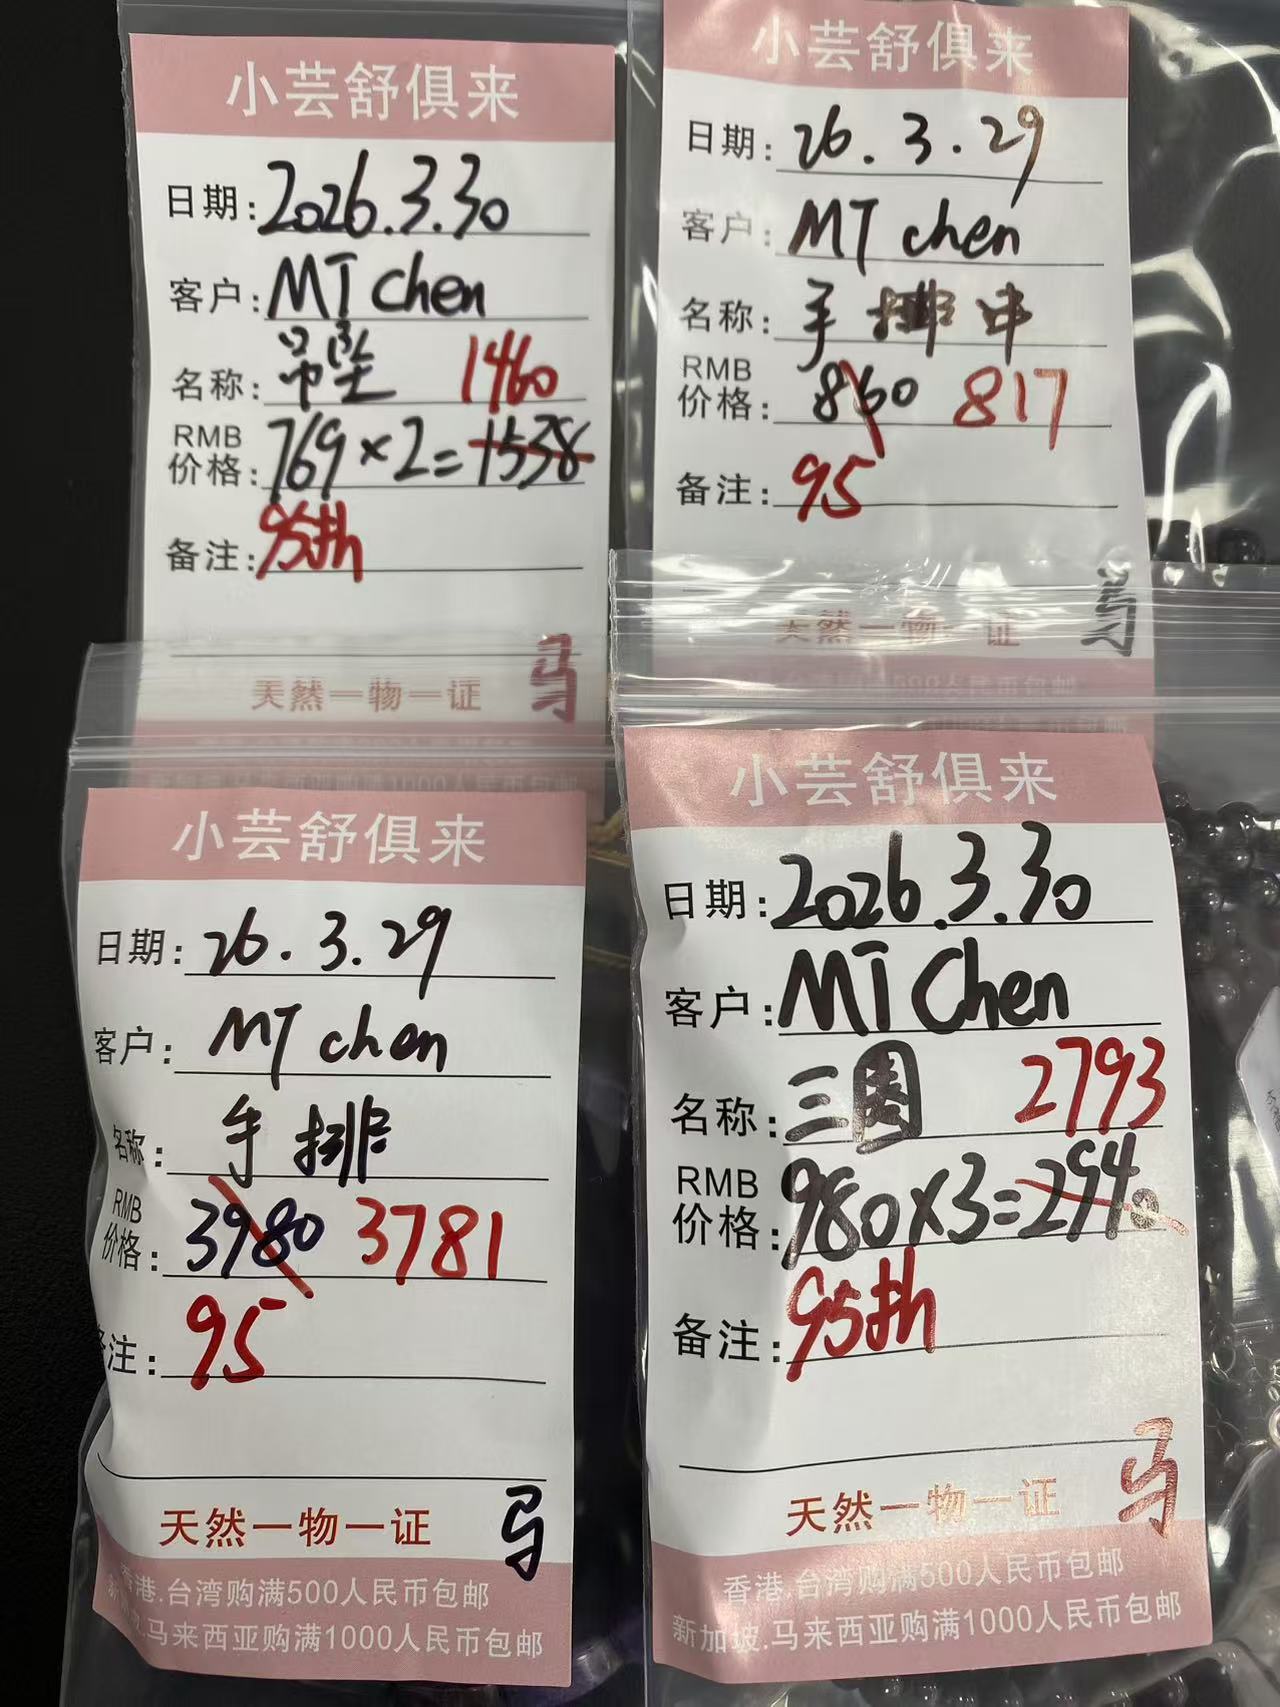 小芸舒俱来
日期：2026.3.30
客户：MT Chen
名称：吊坠 1460
RMB
价格：769×2=1538
备注：95折
天然一物一证
马
小芸舒俱来
日期：26.3.29
客户：MT chen
名称：手排串
RMB
价格：860 817
备注：95
天然一物一证
马
小芸舒俱来
日期：26.3.29
客户：MT chen
名称：手排
RMB
价格：3980 3781
备注：95
天然一物一证
马
香港.台湾购满500人民币包邮
新加坡.马来西亚购满1000人民币包邮
小芸舒俱来
日期：2026.3.30
客户：MT Chen
名称：三圈 2793
RMB
价格：980×3=2940
备注：95折
天然一物一证
马
香港.台湾购满500人民币包邮
新加坡.马来西亚购满1000人民币包邮